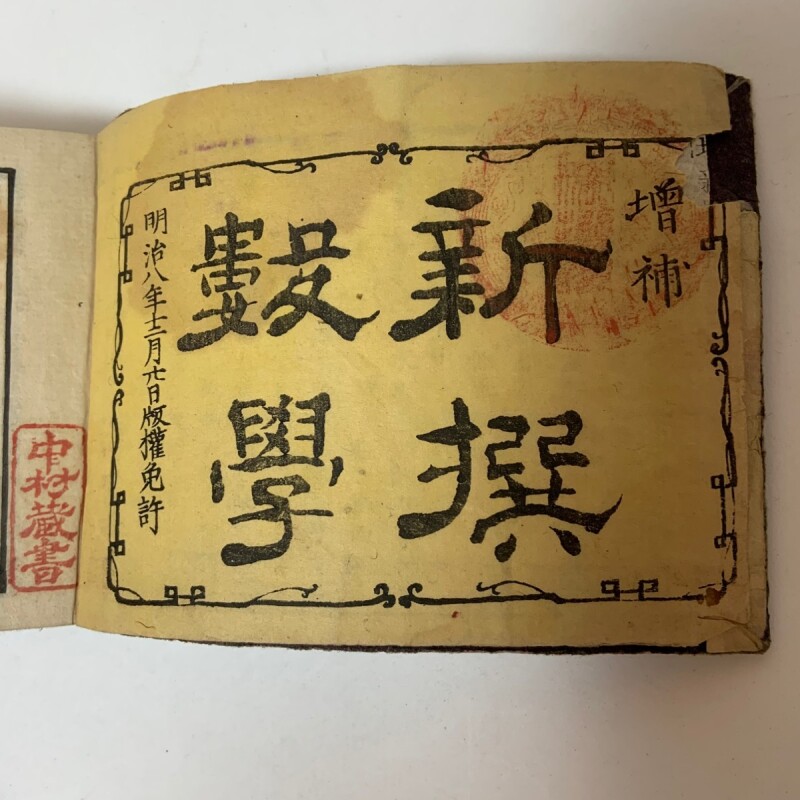 增補
新撰
數學
明治八年十二月六日版權免許
中村蔵書